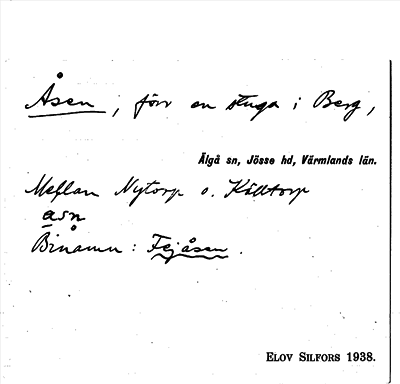 Åsen, förr en stuga i Berg,
Älgå sn, Jösse hd, Värmlands län.
Mellan Nytorp o. Källtorp
åsn
Binamn: Fejåsen.
ELOV SILFORS 1938.